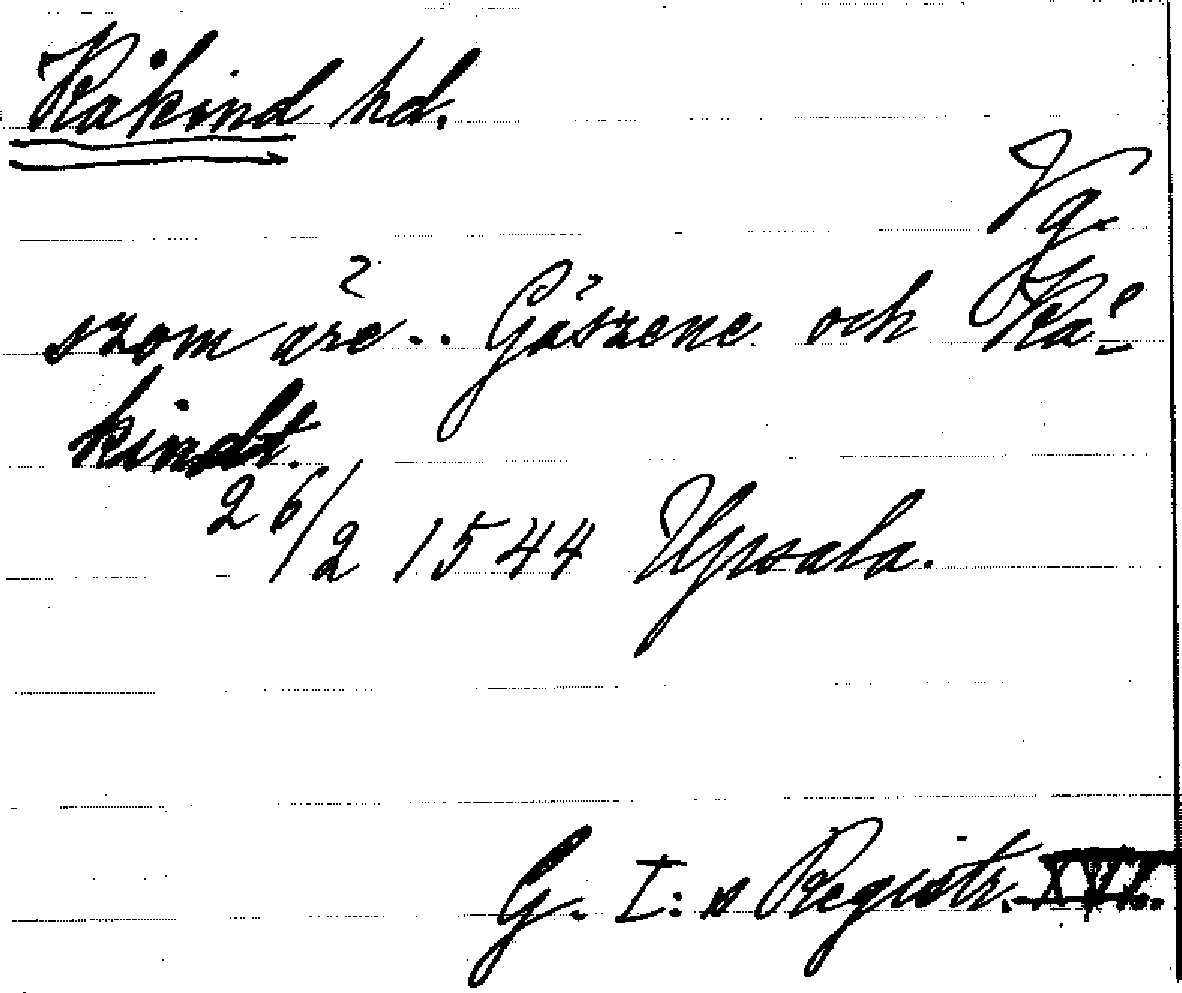 Kåkind hd.
Vg.
szom äre.. Gåszene och Kå-
kindt.
26/2 1544 Upsala.
G. I:s Registr. XVI.